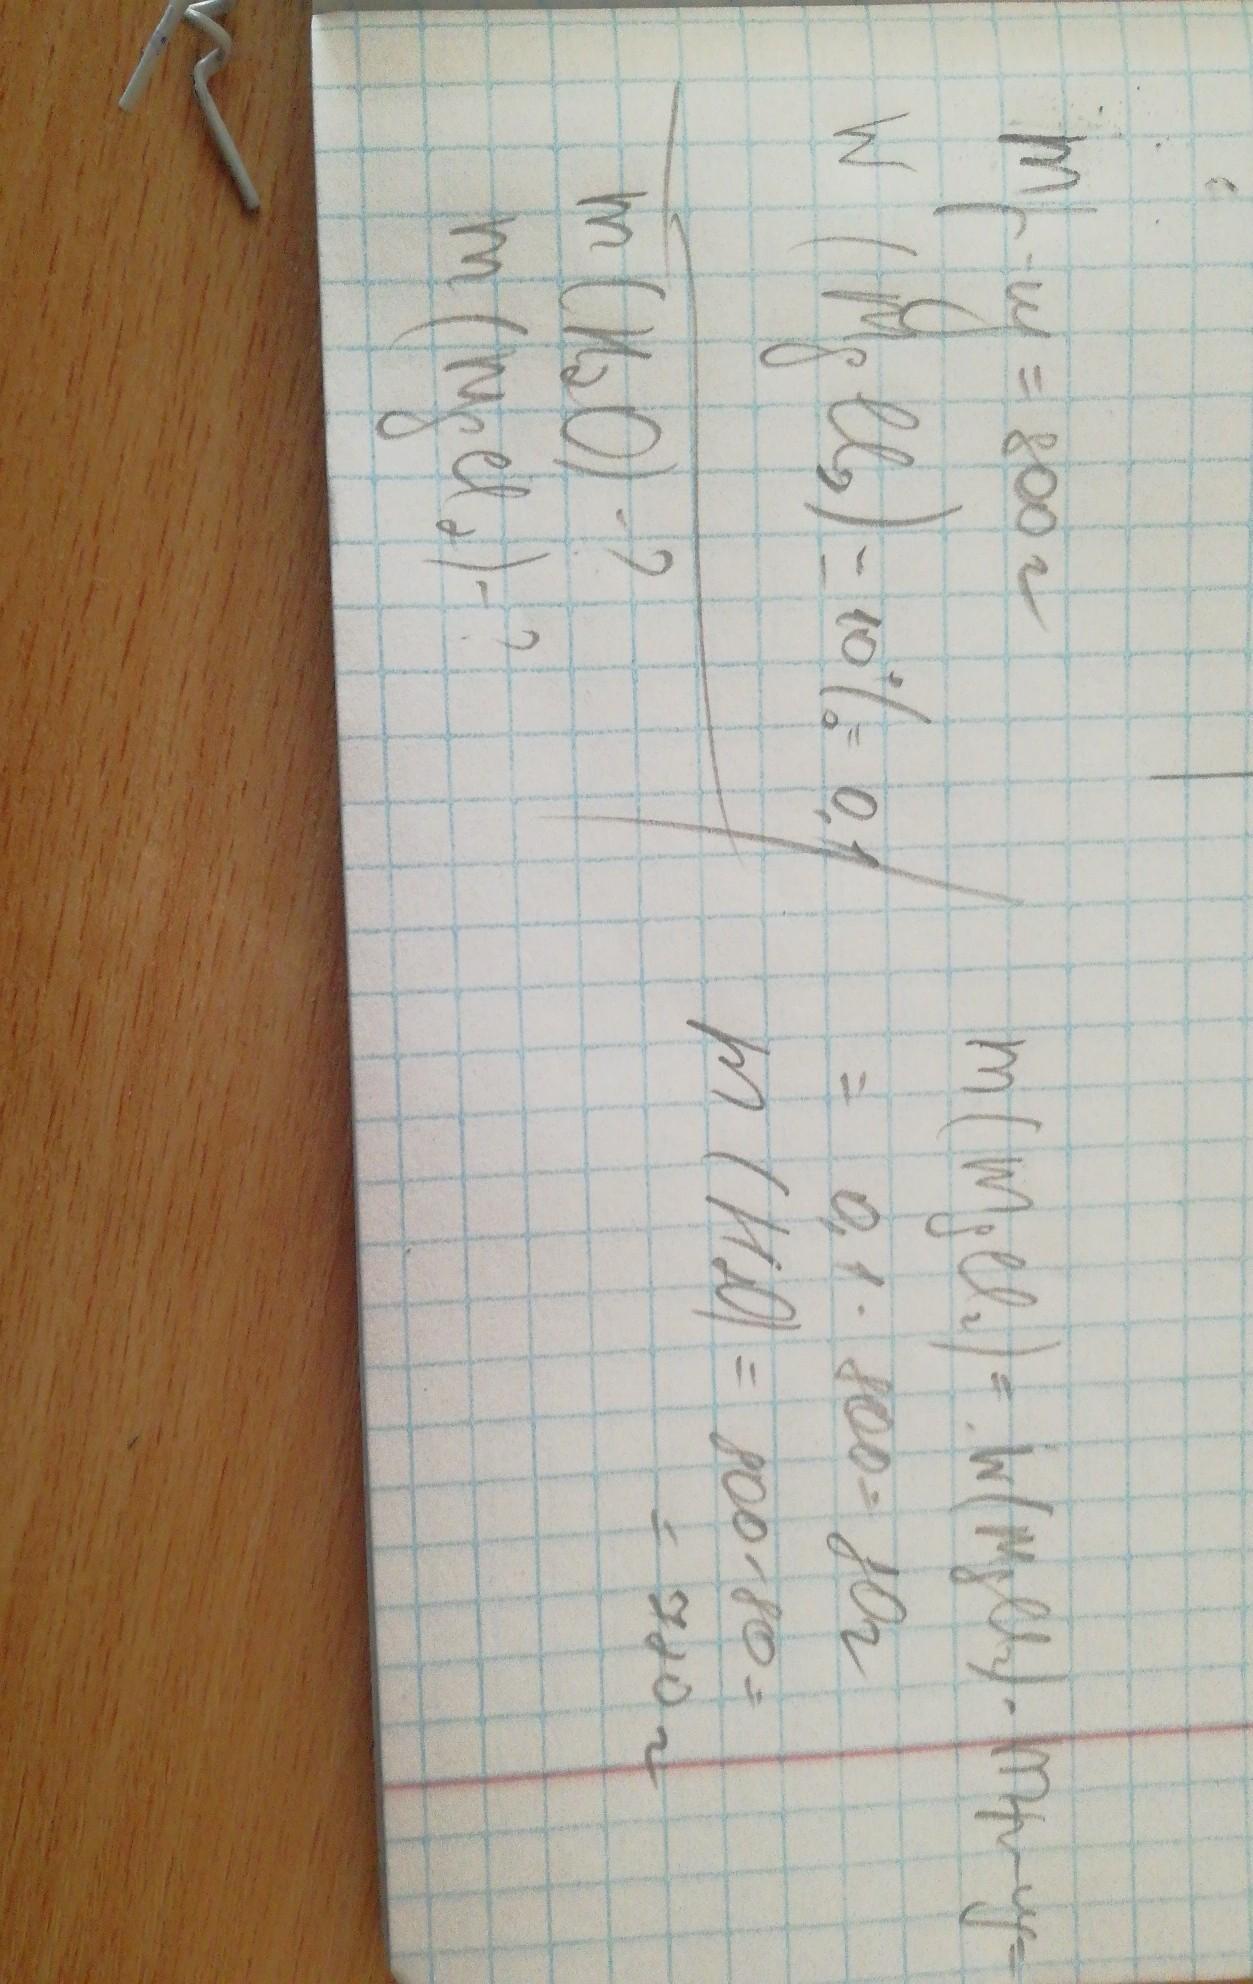 m р-ну = 800 г
w (MgCl₂) = 10% = 0,1
m (H₂O) - ?
m (MgCl₂) - ?
m (MgCl₂) = w (MgCl₂) · m р-ну =
= 0,1 · 800 = 80 г
m (H₂O) = 800 - 80 =
= 720 г